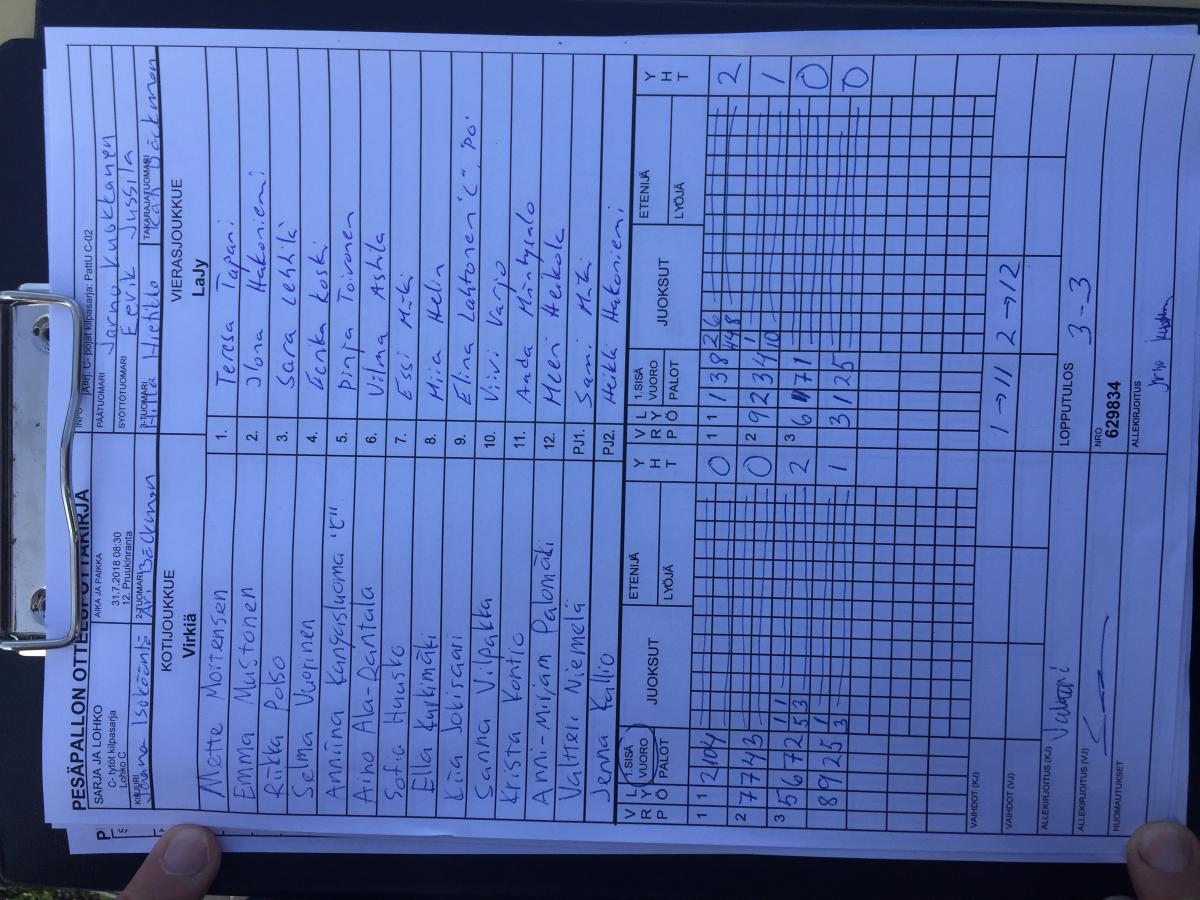 PESÄPALLON OTTELUPÖYTÄKIRJA
SARJA JA LOHKO
C- tytöt kilpasarja
Lohko C
AIKA JA PAIKKA
31.7.2018 08:30
12. Pruukinranta
APrj. C- pojat kilpasarja: PattU C-02
PÄÄTUOMARI
Jarno Kukkanen
SYÖTTÖTUOMARI
Eevik Jussila
KIRJURI
Isokääntä
2-TUOMARI
Ari Bäckman
3-TUOMARI
TAKARAJATUOMARI
Bäckman
KOTIJOUKKUE
Virkiä
VIERASJOUKKUE
LaJy
Mette Mortensen 1. Teresa Tapani
Emma Mustonen 2. Ilona Hakoniemi
Riikka Polso 3. Sara Lehtilä
Selma Vuorinen 4. Eerika Koski
Anniina Kangasluoma "C" 5. Pinja Toivonen
Aino Ala-Rantala 6. Vilma Ashla
Sofia Huusko 7. Essi Mäki
Ella Kurkimäki 8. Miia Helin
Kiia Jokisaari 9. Elina Lahtonen "C", PO.
Sanna Vilpakka 10. Viivi Varjo
Krista Kontio 11. Aada Mäntysalo
Anni-Mirjam Palomäki 12. Meeri Heikola
Valtteri Niemelä PJ1. Sami Mäki
Jenna Kallio PJ2. Heikki Hakoniemi
V R P L Y Ö 1.SISÄ VUORO PALOT JUOKSUT ETENIJÄ LYÖJÄ Y H T V R P L Y Ö 1.SISÄ VUORO PALOT JUOKSUT ETENIJÄ LYÖJÄ Y H T
1 1 2 10 4 0 1 1 1 3 8 2 6 2
2 7 7 4 3 0 2 9 2 3 4 1 10 1
3 5 6 7 2 1 1 5 3 2 3 6 1 7 1 0
8 9 2 5 1 3 1 3 1 2 5 0
VAIHDOT (KJ) 1 → 11 2 → 12
VAIHDOT (VJ)
ALLEKIRJOITUS (KJ)
LOPPUTULOS
3 - 3
ALLEKIRJOITUS (VJ)
NRO
629834
HUOMAUTUKSET
ALLEKIRJOITUS